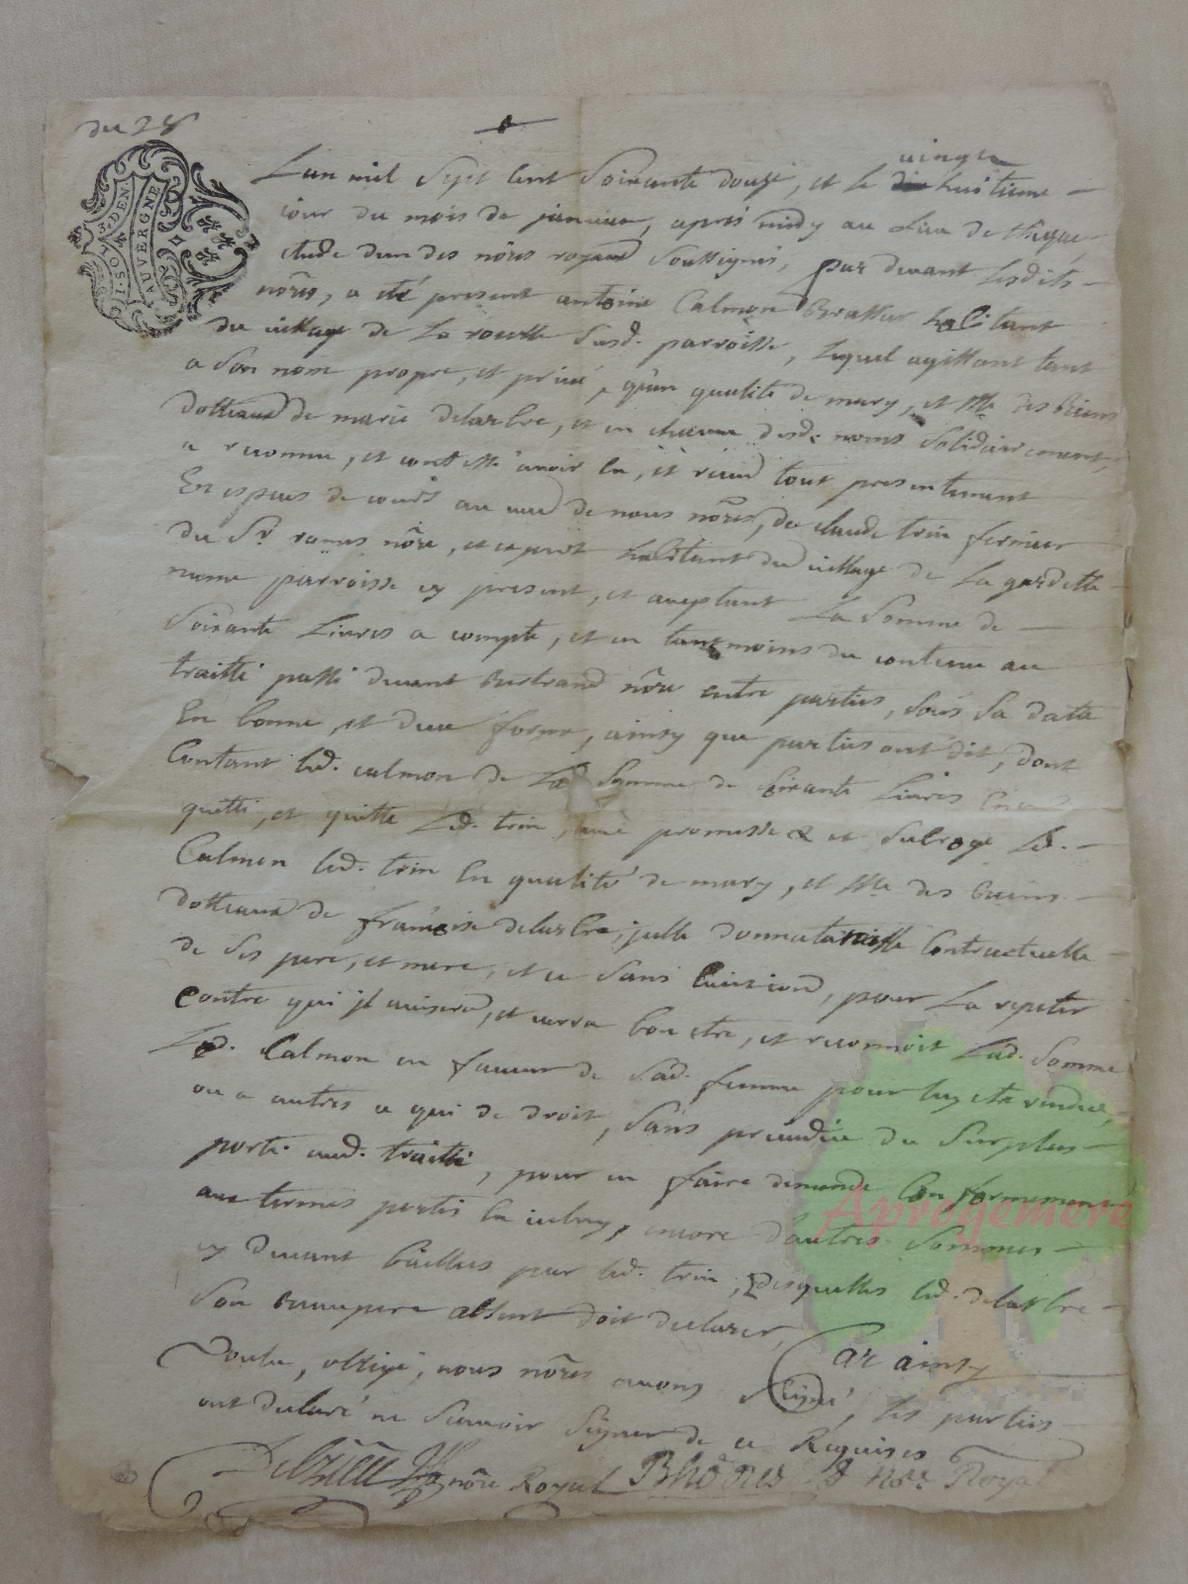 du 28
1. SOL 3 DEN
AUVERGNE
vingt
L'an mil Sept Cent Soixante douze, et le dix huitieme
iour du mois de janvier, après midy au Lieu de
etude d'un des nõres royaux Soussignés, par devant Lesdits
nõres, a eté present antoine Calmon Brassier habitant
du village de La Susd. parroisse, lequel agissant tant
a Son nom propre, et privé, qu'en qualité de mary, et Me des biens
dotteaux de marie delarbre, et en chacun desd. noms Solidairement,
a reconnu, et confessé avoir eu, et receu tout presentement
En especes de cours au veu de nous nõres, de claude trin fermier
du Sr. nõre, et habitant du village de La gardette
meme parroisse cy present, et acceptant La Somme de
Soixante Livres a compte, et en tantmoins du contenu au
traitté passé devant Bertrand nõre entre parties, sous Sa datte
En bonne, et due forme, ainsy que parties ont dit, dont
Contant led. calmon de Lad. Somme de Soixante Livres En a
quitté, et quitte Led. trin, avec promesse & et Subroge Led.
Calmon led. trin En qualité de mary, et Me des biens
dotteaux de françoise delarbre, jcelle donnatairesse Contractuelle
de Ses pere, et mere, et ce Sans Eviction, pour La repeter
Contre qui jl avisera, et verra bon etre, et reconnoit Lad. Somme
Led. Calmon en faveur de Sad. femme pour luy etre rendue,
ou a autres a qui de droit, Sans prejudice du Surplus
porté aud. traitté, pour en faire demande Conformement
aux termes portés En icelluy, encore d'autres Sommes
cy devant baillées par led. trin, Desquelles led. delarbre
Son beaupere absent doit declarer, Car ainsy
Voulu, obligé, nous nõres avons Signé, les parties
ont declaré ne Scavoir Signer de ce Requises
nõre Royal Rhodes nõre Royal
Aprogemere